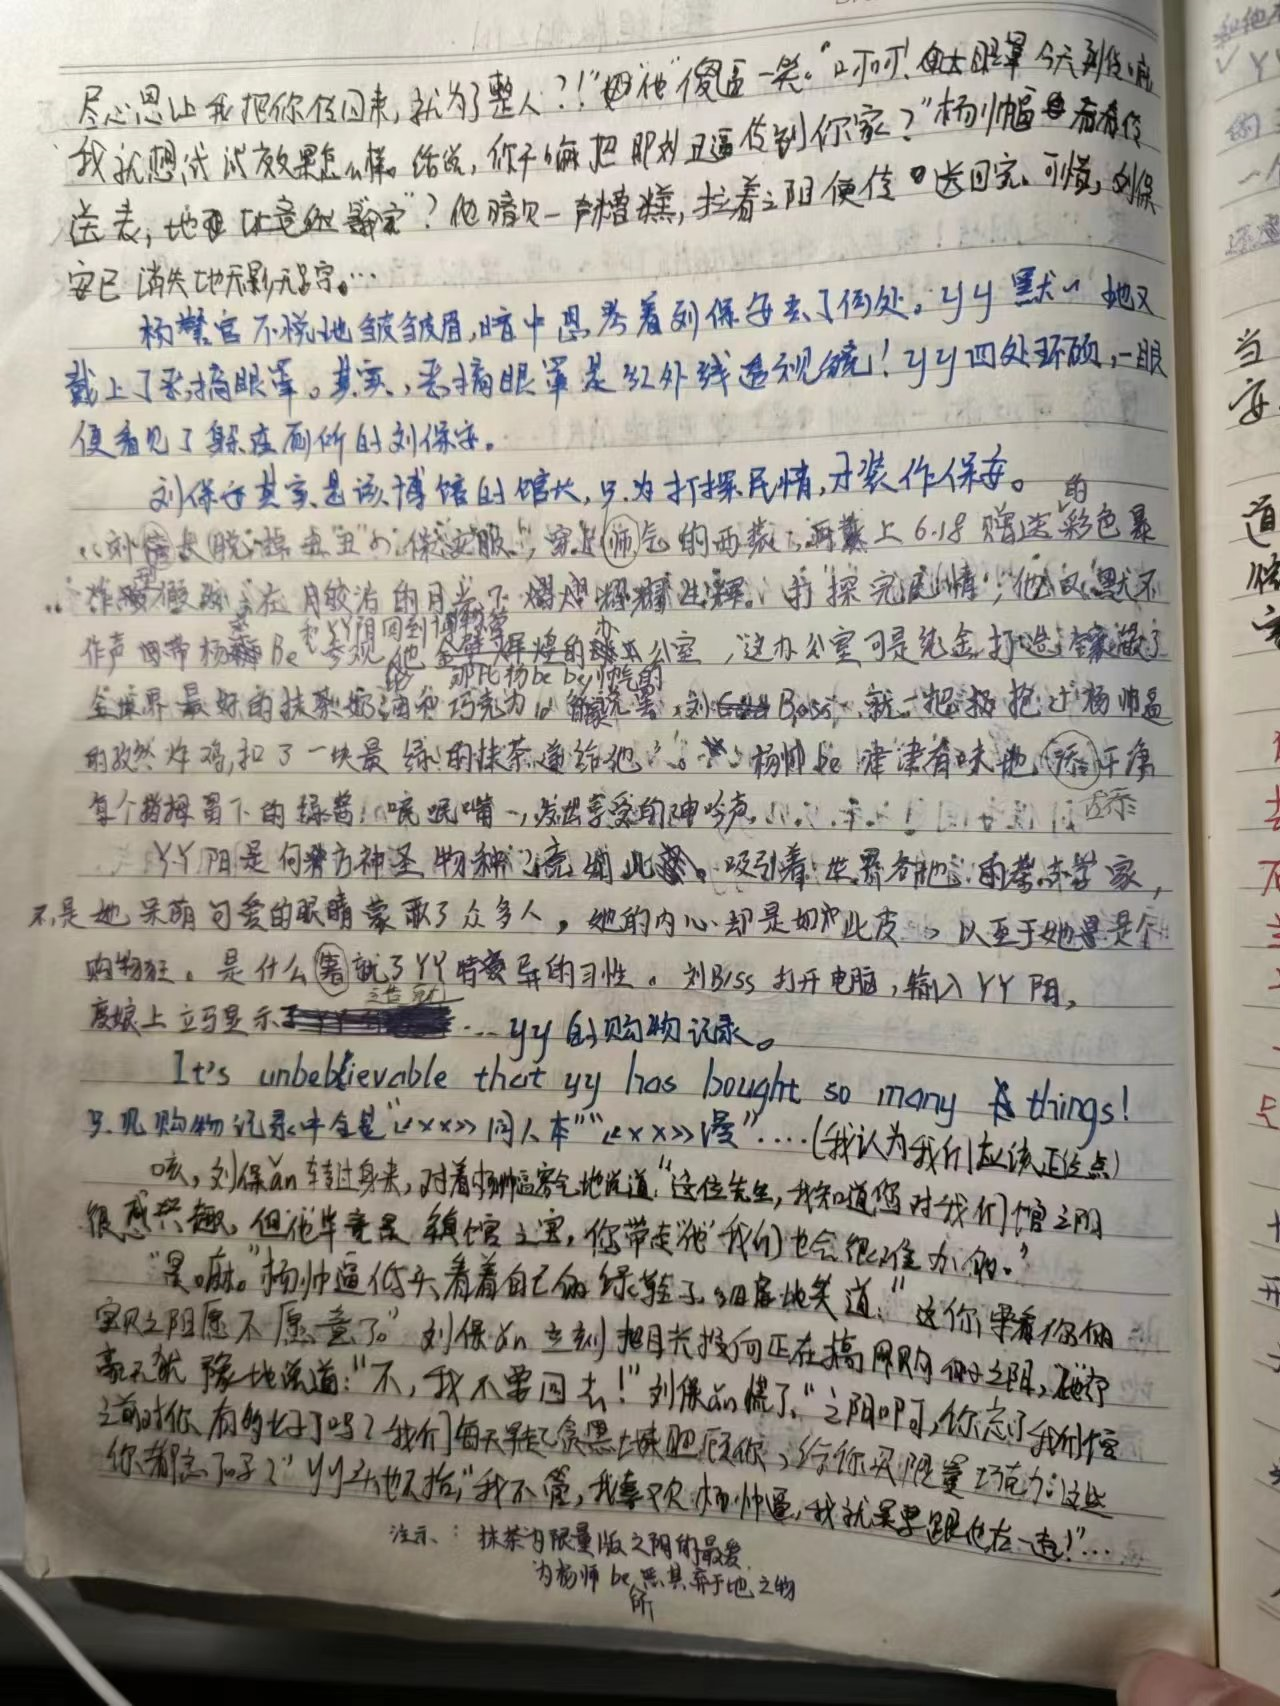 尽心思让我把你传回来，就为了整人？！"她"他"傻逼一笑。"呵呵！大眼罩今天到货嘛
我就想试试效果怎么样。话说，你干嘛把那刘丑逼传到你家？"杨帅逼看看传
送表，地址竟然是家"？他暗叹一声糟糕，拉着之阳便传送回家。可惜，刘保
安已消失地无影无踪。…
杨警官不悦地皱皱眉，暗中思考着刘保安去了何处。yy默默地又
戴上了恶搞眼罩。其实，恶搞眼罩是红外线透视镜！yy四处环顾，一眼
便看见了躲在厕所的刘保安。
刘保安其实是该博馆的馆长，只为打探民情，才装作保安。
刘馆长脱掉丑丑的保安服，穿上帅气的西装，再戴上6.18赠送的彩色暴
在月皎洁的月光下熠熠耀耀生辉。打探完民情，他又默不
作声地带杨帅Be和YY阳回到博物馆参观他金碧辉煌的办公室，这办公室可是纯金打造
全世界最好的抹茶奶油和巧克力 那比杨be be帅气的 刘Boss就一把抓过杨帅逼
的孜然炸鸡，扣了一块最绿的抹茶递给他。杨帅be津津有味地舔干净
每个拇指留下的绿酱，抿抿嘴，发出享受的呻吟声。
YY阳是何方神圣物种，竟如此吸引着世界各地的考古学家，
不是她呆萌可爱的眼睛蒙蔽了众多人，她的内心却是如此皮，以至于她是个
购物狂。是什么造就了YY特异的习性。刘Boss打开电脑，输入YY阳，
度娘上立马显示…yy的购物记录。
It's unbelievable that yy has bought so many things!
只见购物记录中全是"《××》同人本""《××》漫"....(我认为我们应该正经点)
咳，刘保ǎn转过身来，对着杨帅逼客气地说道："这位先生，我知道您对我们馆之阳
很感兴趣。但他毕竟是镇馆之宝，你带走"他"我们也会很难办的。"
"是嘛。"杨帅逼低头看着自己的绿鞋子，细声地笑道："这你得看你的
宝贝之阳愿不愿意了。"刘保ǎn立刻把目光投向正在搞网购的之阳，她
毫无犹豫地说道："不，我不要回去！"刘保ǎn慌了。"之阳啊，你忘了我们馆
之前对你有多好了吗？我们每天早起贪黑地照顾你，给你买限量巧克力；这些
你都忘了吗？"yy头也不抬，"我不管，我喜欢杨帅逼，我就是要跟他在一起！"…
注示：抹茶为限量版之阳的最爱
为杨帅be所恶其弃于地之物